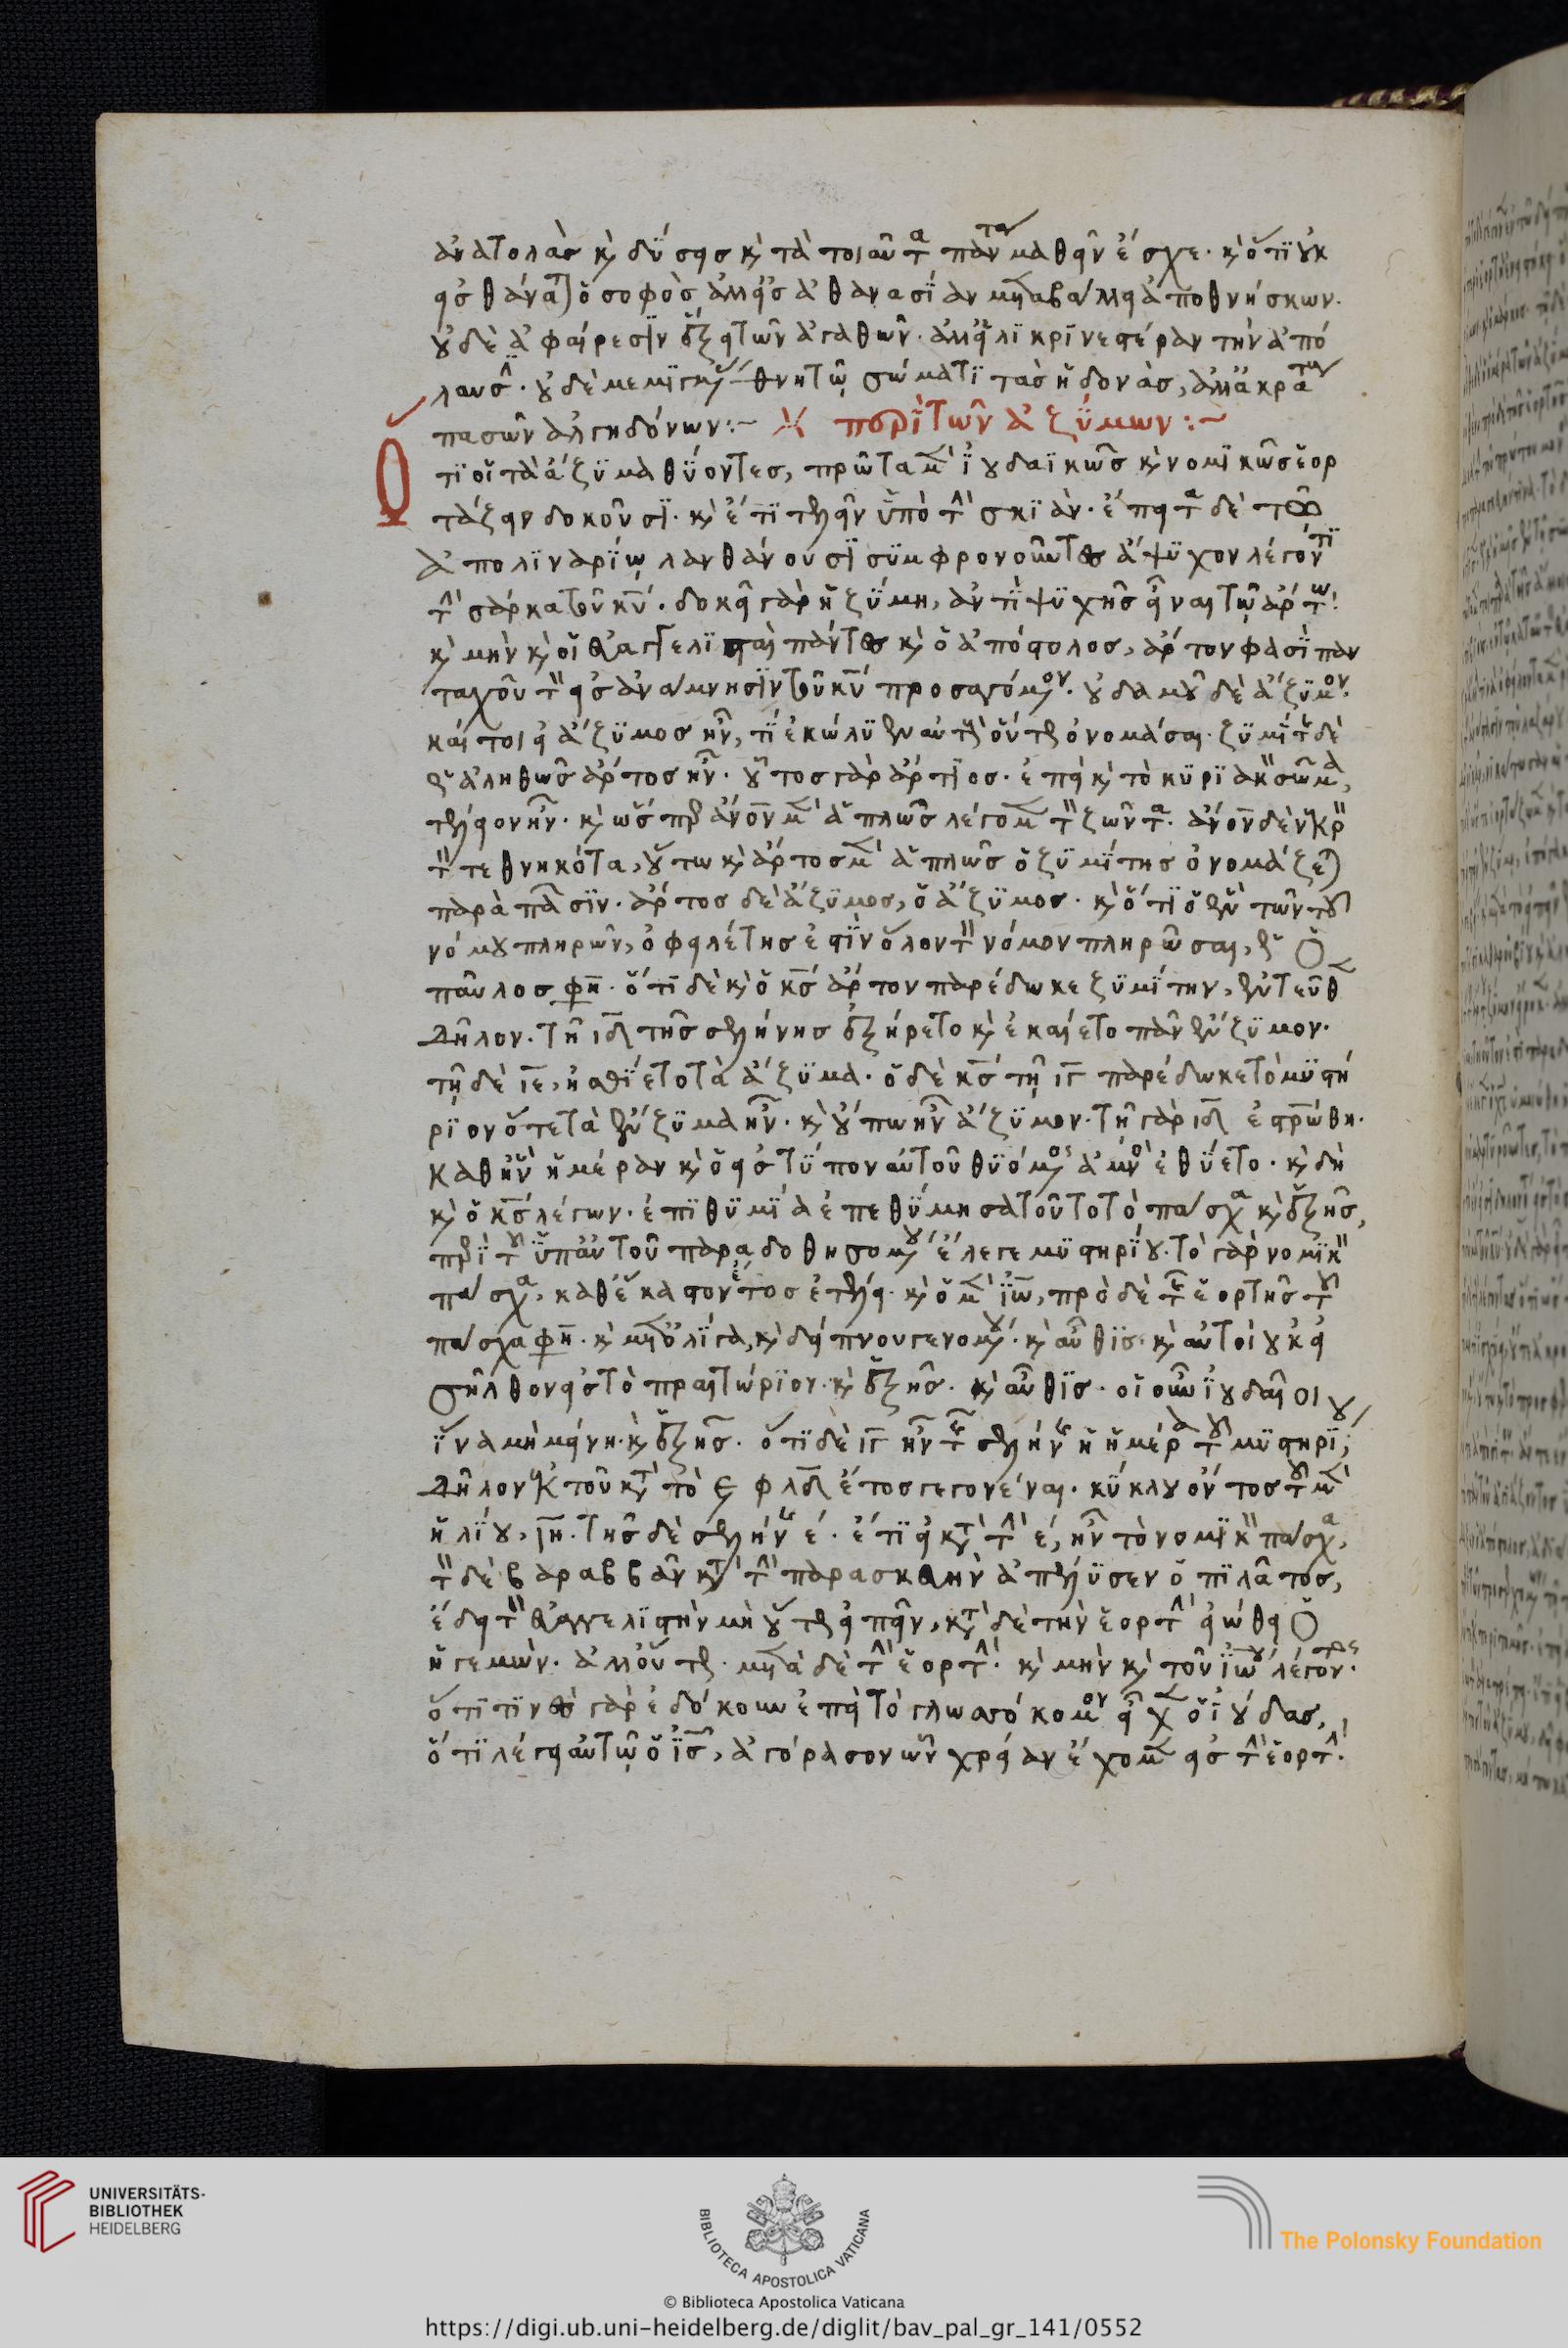 ἀνατολὰς καὶ δύσεις καὶ τὰ τοιαῦτα πάντα μαθεῖν ἔσχε. καὶ ὅτι οὐκ
εἰς θάνατον ὁ σοφὸς ἀλλ' εἰς ἀθανασίαν μεταβάλλει ἀποθνήσκων.
οὐδὲ ἀφαίρεσιν ἕξει τῶν ἀγαθῶν. ἀλλ' εἰλικρινεστέραν τὴν ἀπό
λαυσιν. οὐδὲ μεμιγμένας θνητῷ σώματι τὰς ἡδονὰς, ἀλλ' ἀκράτους
πασῶν ἀλγηδόνων:~ περὶ τῶν ἀζύμων:~
Ὅτι οἱ τὰ ἄζυμα θύοντες, πρῶτα μὲν ἰουδαϊκῶς καὶ νομικῶς ἑορ
τάζειν δοκοῦσι. καὶ ἔτι τελεῖν ὑπὸ τὴν σκιάν. ἔπειτα δὲ τῷ
ἀπολιναρίῳ λανθάνουσι συμφρονοῦντες ἄψυχον λέγοντι
τὴν σάρκα τοῦ κυ. δοκεῖ γὰρ ἡ ζύμη, ἀντὶ ψυχῆς εἶναι τῷ ἄρτῳ.
καὶ μὴν καὶ οἱ εὐαγγελισταὶ πάντες καὶ ὁ ἀπόστολος, ἄρτον φασὶ παν
ταχοῦ τὸν εἰς ἀνάμνησιν τοῦ κυ προσαγόμενον. οὐδαμοῦ δὲ ἄζυμον.
καίτοι εἰ ἄζυμος ἦν, τί ἐκώλυεν αὐτὸν οὕτως ὀνομάσαι. ζυμίτης δὲ
καὶ ἀληθῶς ἄρτος ἦν. οὗτος γὰρ ἄρτιος. ἐπεὶ καὶ τὸ κυριακὸν σῶμα,
τέλειον ἦν. καὶ ὥσπερ ἄνον μὲν ἁπλῶς λέγομεν τὸν ζῶντα. ἄνον δὲ νεκρὸν
τὸν τεθνηκότα, οὕτω καὶ ἄρτος μὲν ἁπλῶς ὁ ζυμίτης ὀνομάζεται
παρὰ πᾶσιν. ἄρτος δὲ ἄζυμος, ὁ ἄζυμος. καὶ ὅτι ὁ ἓν τῶν τοῦ
νόμου πληρῶν, ὀφειλέτης ἐστὶν ὅλον τὸν νόμον πληρῶσαι, καὶ ὁ
παῦλος φη. ὅτι δὲ καὶ ὁ κς ἄρτον παρέδωκε ζυμίτην, ἐντεῦθεν
δῆλον. τῇ ιδ τῆς σελήνης ἐξῄρετο καὶ ἐκαίετο πᾶν ἔνζυμον.
τῇ δὲ ιε, ἠσθίετο τὰ ἄζυμα. ὁ δὲ κς τῇ ιγ παρέδωκε τὸ μυστή
ριον ὅτε τὰ ἔνζυμα ἦν. καὶ οὔπω ἦν ἄζυμον. τῇ γὰρ ιδ ἐστρώθη.
καθ' ἣν ἡμέραν καὶ ὁ εἰς τύπον αὐτοῦ θυόμενος ἀμνὸς ἐθύετο. καὶ δὴ
καὶ ὁ κς λέγων. ἐπιθυμία ἐπεθύμησα τοῦτο τὸ πάσχα καὶ ἑξῆς,
περὶ τοῦ ὑπ' αὐτοῦ παραδοθησομένου ἔλεγε μυστηρίου. τὸ γὰρ νομικὸν
πάσχα, καθέκαστον ἔτος ἐτέλει. καὶ ὁ μὲν ιω, πρὸ δὲ τῆς ἑορτῆς τοῦ
πάσχα φη. καὶ μετ' ὀλίγα, καὶ δείπνου γενομένου. καὶ αὖθις. καὶ αὐτοὶ οὐκ εἰ
σῆλθον εἰς τὸ πραιτώριον. καὶ ἑξῆς. καὶ αὖθις. οἱ οὖν ἰουδαῖοι
ἵνα μὴ μείνη. καὶ ἑξῆς. ὅτι δὲ ιγ ἦν τῆς σελήνης ἡ ἡμέρα τοῦ μυστηρίου,
δῆλον ἐκ τοῦ κατὰ τὸ ͵εφλδ ἔτος γεγονέναι. κύκλου ὄντος τοῦ μὲν
ἡλίου, ιη. τῆς δὲ σελήνης ε. ἔτι εἰ κατὰ τὴν ε, ἦν τὸ νομικὸν πάσχα,
τὸν δὲ βαραββᾶν κατὰ τὴν παρασκευὴν ἀπέλυσεν ὁ πιλᾶτος,
ἔδει τὸν εὐαγγελιστὴν μὴ οὕτως εἰπεῖν, κατὰ δὲ τὴν ἑορτὴν εἰώθει ὁ
ἡγεμών. ἀλλ' οὕτως. μετὰ δὲ τὴν ἑορτήν. καὶ μὴν καὶ τοῦ ιωου λέγοντος.
ὅτι τινὲς γὰρ ἐδόκουν ἐπεὶ τὸ γλωσσόκομον εἶχεν ὁ ἰούδας,
ὅτι λέγει αὐτῷ ὁ ις, ἀγόρασον ὧν χρείαν ἔχομεν εἰς τὴν ἑορτήν.
UNIVERSITÄTS-
BIBLIOTHEK
HEIDELBERG
BIBLIOTECA APOSTOLICA VATICANA
© Biblioteca Apostolica Vaticana
The Polonsky Foundation
https://digi.ub.uni-heidelberg.de/diglit/bav_pal_gr_141/0552